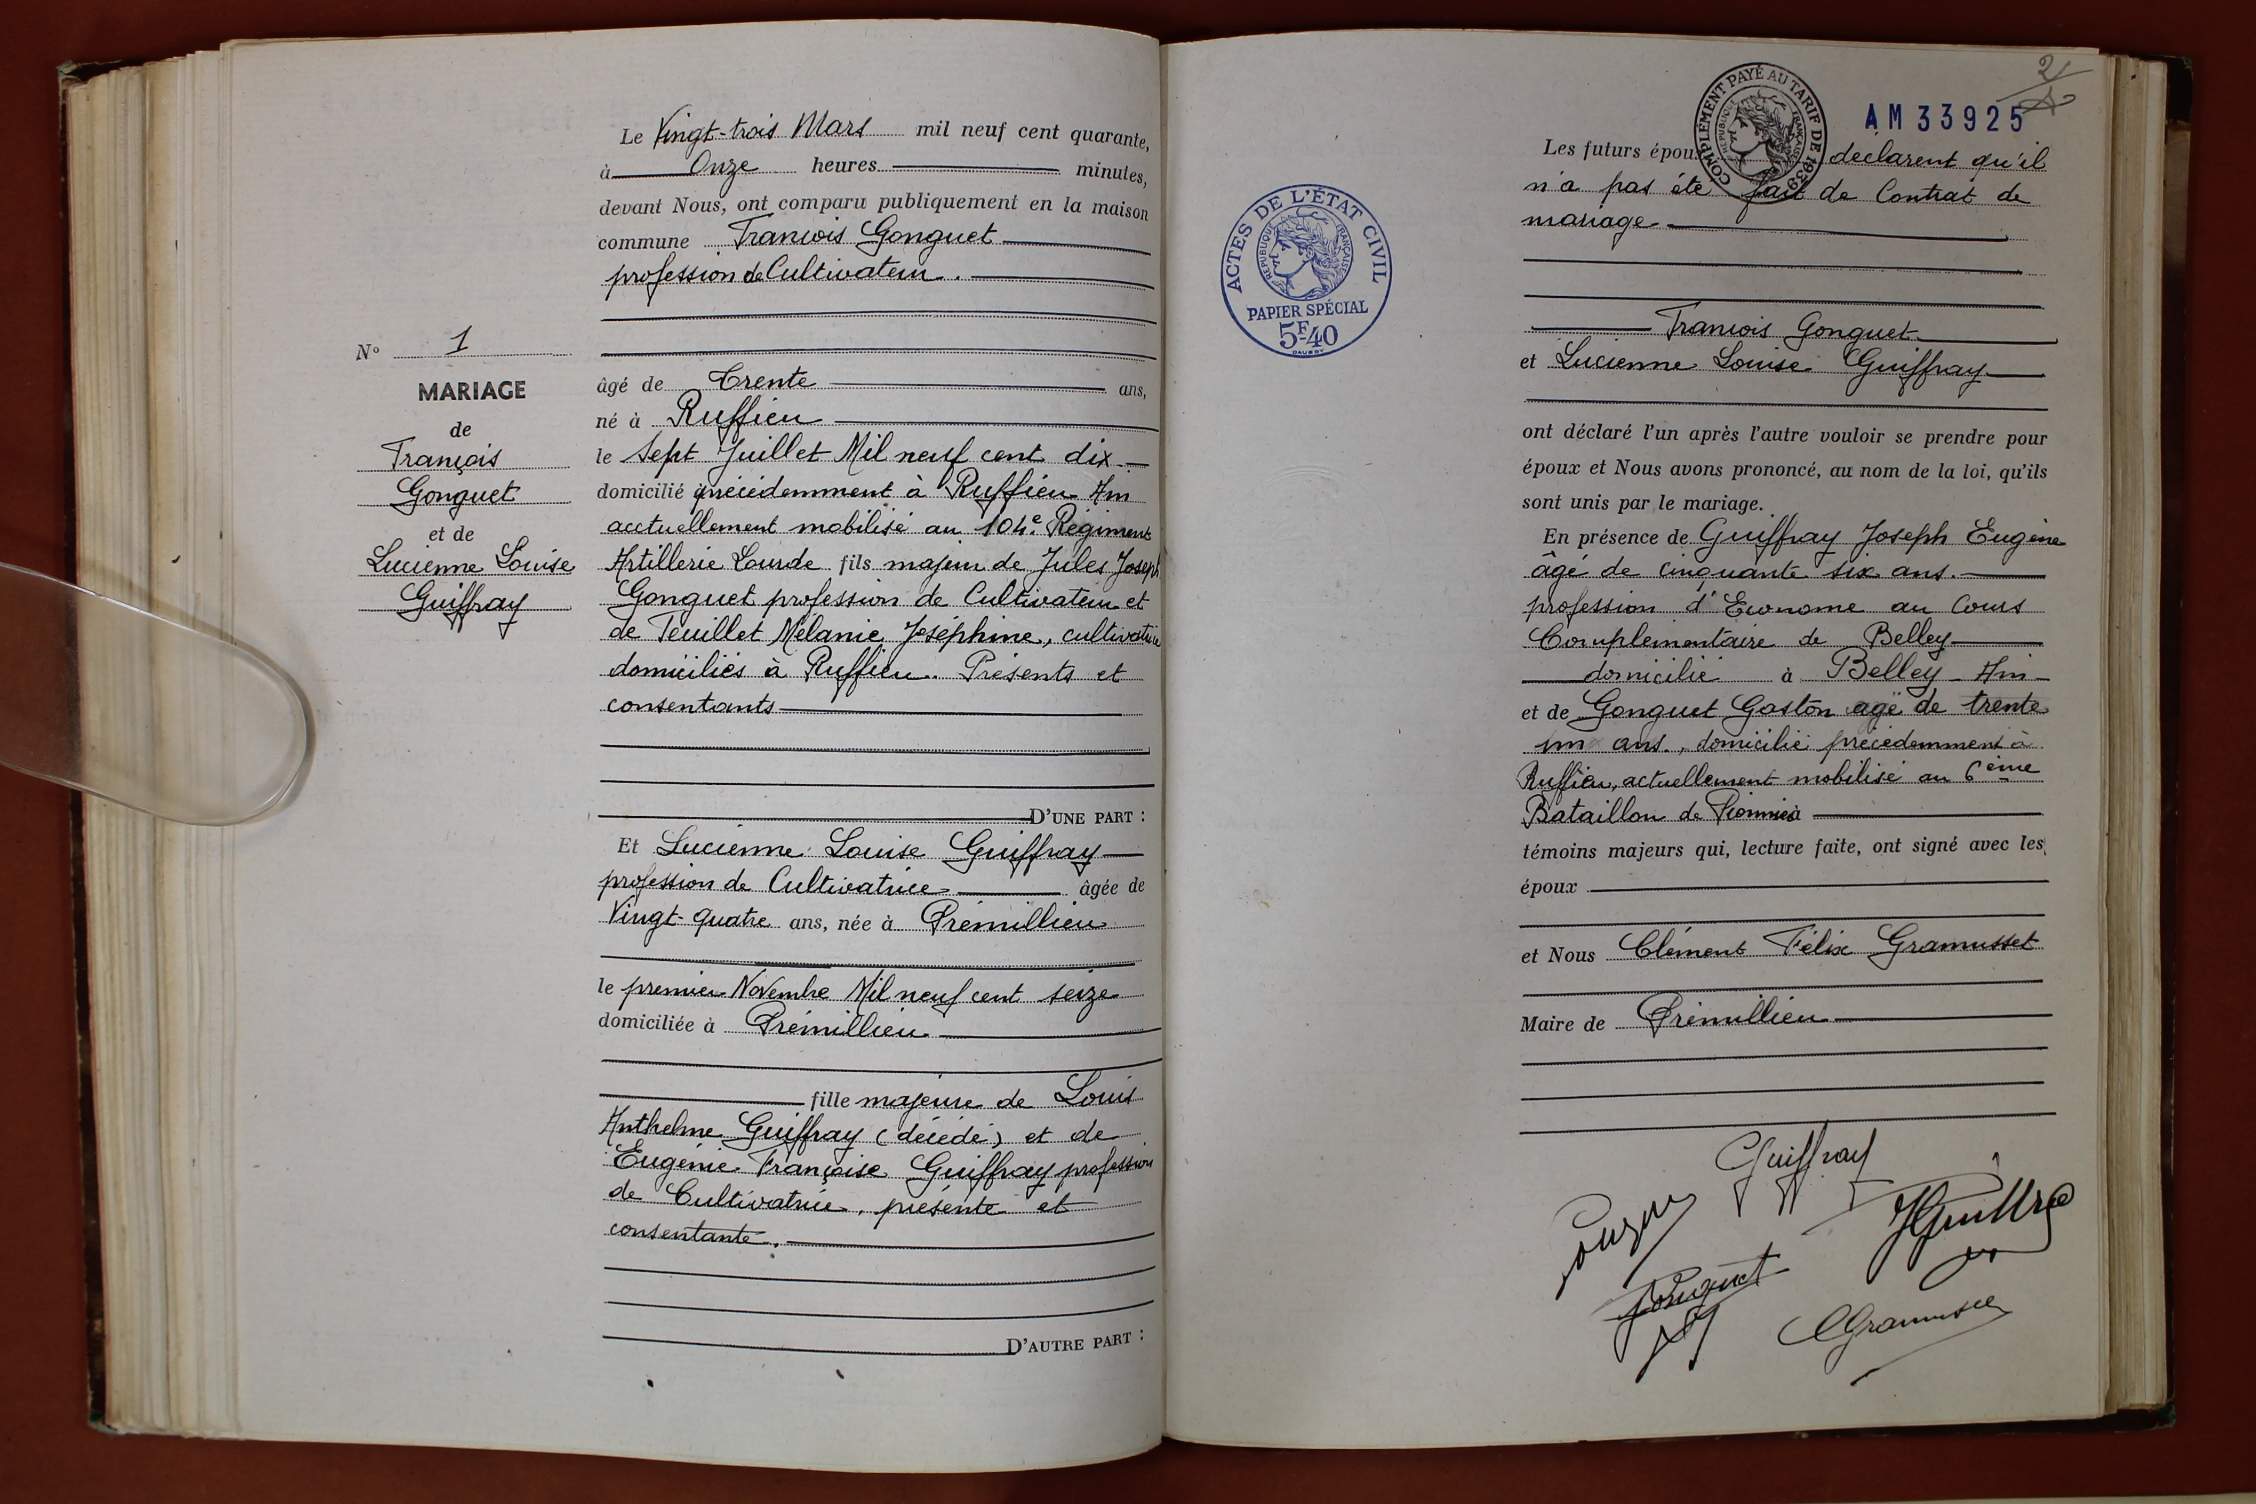 Le Vingt-trois Mars mil neuf cent quarante,
à Onze heures minutes,
devant Nous, ont comparu publiquement en la maison
commune François Gonguet
profession de Cultivateur.
N° 1
MARIAGE
de
François
Gonguet
et de
Lucienne Louise
Guiffray
âgé de Trente ans,
né à Ruffieu
le Sept Juillet Mil neuf cent dix
domicilié précédemment à Ruffieu Ain
acctuellement mobilisé au 104e Régiment
Artillerie Lourde fils majeur de Jules Joseph
Gonguet profession de Cultivateur et
de Teuillet Mélanie Joséphine, cultivatrice
domiciliés à Ruffieu. Présents et
consentants
D'UNE PART :
Et Lucienne Louise Guiffray
profession de Cultivatrice âgée de
Vingt-quatre ans, née à Prémillieu
le premier Novembre Mil neuf cent seize
domiciliée à Prémillieu
fille majeure de Louis
Anthelme Guiffray (décédé) et de
Eugénie Françoise Guiffray profession
de Cultivatrice, présente et
consentante.
D'AUTRE PART :
ACTES DE L'ÉTAT CIVIL
RÉPUBLIQUE FRANÇAISE
PAPIER SPÉCIAL
5F40
COMPLÉMENT PAYÉ AU TARIF DE 1939
RÉPUBLIQUE FRANÇAISE
2
AM 33925
Les futurs époux déclarent qu'il
n'a pas été fait de Contrat de
mariage
François Gonguet
et Lucienne Louise Guiffray
ont déclaré l'un après l'autre vouloir se prendre pour
époux et Nous avons prononcé, au nom de la loi, qu'ils
sont unis par le mariage.
En présence de Guiffray Joseph Eugène
âgé de cinquante six ans.
profession d'Econome au Cours
Complémentaire de Belley
domicilié à Belley - Ain -
et de Gonguet Gaston agé de trente
un ans, domicilié précédemment à
Ruffieu, actuellement mobilisé au 6ème
Bataillon de Pionniers
témoins majeurs qui, lecture faite, ont signé avec les
époux
et Nous Clément Félix Gramusset
Maire de Prémillieu
Guiffray
Gonguet
CGramusset